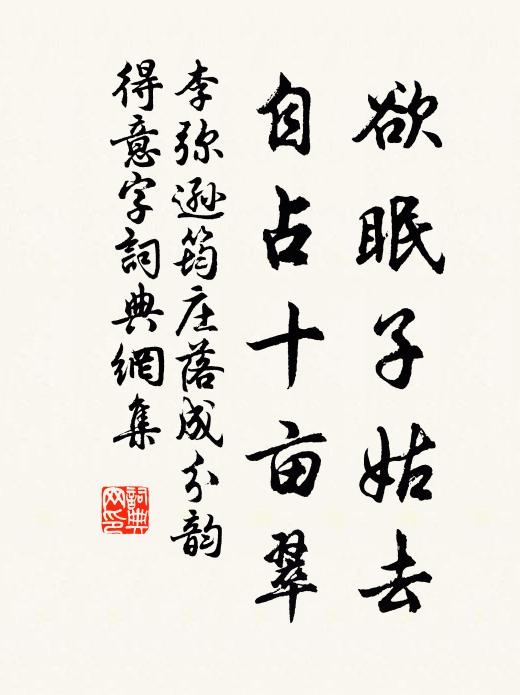 欲眠子姑去
自占十亩翠
李弥逊筠庄落成分韵
得意字詞典網集
詞典网印